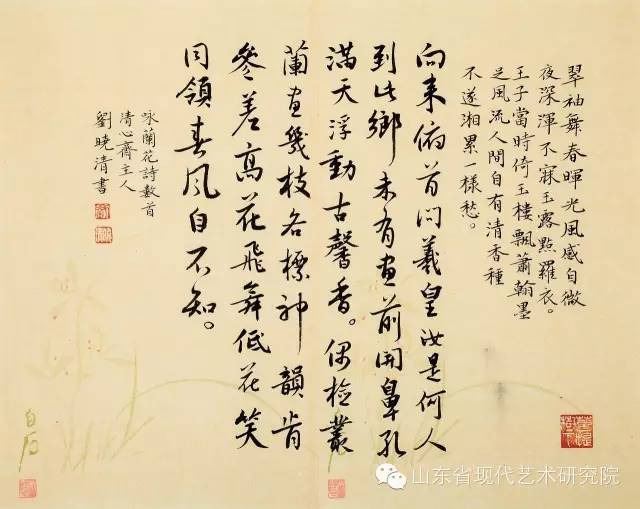 翠袖舞春暉光風感自微
夜深渾不寐玉露點羅衣。
王子當時倚玉樓飄蕭翰墨
足風流人間自有清香種
不逐湘纍一樣愁。
向來俯首問羲皇汝是何人
到此鄉未有畫前開鼻孔
滿天浮動古馨香。偶檢叢
蘭畫幾枝各標神韻肯
參差高花飛舞低花笑
同領春風自不知。
詠蘭花詩數首
清心齋主人
劉曉清書
白石
山东省现代艺术研究院